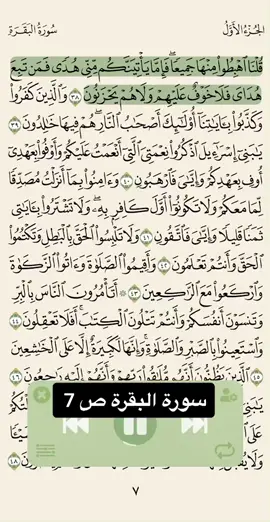 الجزء الأول
سورة البقرة
قُلْنَا ٱهْبِطُوا۟ مِنْهَا جَمِيعًۭا ۖ فَإِمَّا يَأْتِيَنَّكُم مِّنِّى هُدًۭى فَمَن تَبِعَ
هُدَاىَ فَلَا خَوْفٌ عَلَيْهِمْ وَلَا هُمْ يَحْزَنُونَ ٣٨ وَٱلَّذِينَ كَفَرُوا۟
وَكَذَّبُوا۟ بِـَٔايَـٰتِنَآ أُو۟لَـٰٓئِكَ أَصْحَـٰبُ ٱلنَّارِ ۖ هُمْ فِيهَا خَـٰلِدُونَ ٣٩
يَـٰبَنِىٓ إِسْرَٰٓءِيلَ ٱذْكُرُوا۟ نِعْمَتِىَ ٱلَّتِىٓ أَنْعَمْتُ عَلَيْكُمْ وَأَوْفُوا۟ بِعَهْدِىٓ
أُوفِ بِعَهْدِكُمْ وَإِيَّـٰىَ فَٱرْهَبُونِ ٤٠ وَءَامِنُوا۟ بِمَآ أَنزَلْتُ مُصَدِّقًۭا
لِّمَا مَعَكُمْ وَلَا تَكُونُوٓا۟ أَوَّلَ كَافِرٍۭ بِهِۦ ۖ وَلَا تَشْتَرُوا۟ بِـَٔايَـٰتِى
ثَمَنًۭا قَلِيلًۭا وَإِيَّـٰىَ فَٱتَّقُونِ ٤١ وَلَا تَلْبِسُوا۟ ٱلْحَقَّ بِٱلْبَـٰطِلِ وَتَكْتُمُوا۟
ٱلْحَقَّ وَأَنتُمْ تَعْلَمُونَ ٤٢ وَأَقِيمُوا۟ ٱلصَّلَوٰةَ وَءَاتُوا۟ ٱلزَّكَوٰةَ
وَٱرْكَعُوا۟ مَعَ ٱلرَّٰكِعِينَ ٤٣ ۞ أَتَأْمُرُونَ ٱلنَّاسَ بِٱلْبِرِّ
وَتَنسَوْنَ أَنفُسَكُمْ وَأَنتُمْ تَتْلُونَ ٱلْكِتَـٰبَ ۚ أَفَلَا تَعْقِلُونَ ٤٤
وَٱسْتَعِينُوا۟ بِٱلصَّبْرِ وَٱلصَّلَوٰةِ ۚ وَإِنَّهَا لَكَبِيرَةٌ إِلَّا عَلَى ٱلْخَـٰشِعِينَ
٤٥ ٱلَّذِينَ يَظُنُّونَ أَنَّهُم مُّلَـٰقُوا۟ رَبِّهِمْ وَأَنَّهُمْ إِلَيْهِ رَٰجِعُونَ ٤٦
سورة البقرة ص 7
٤٨
٧